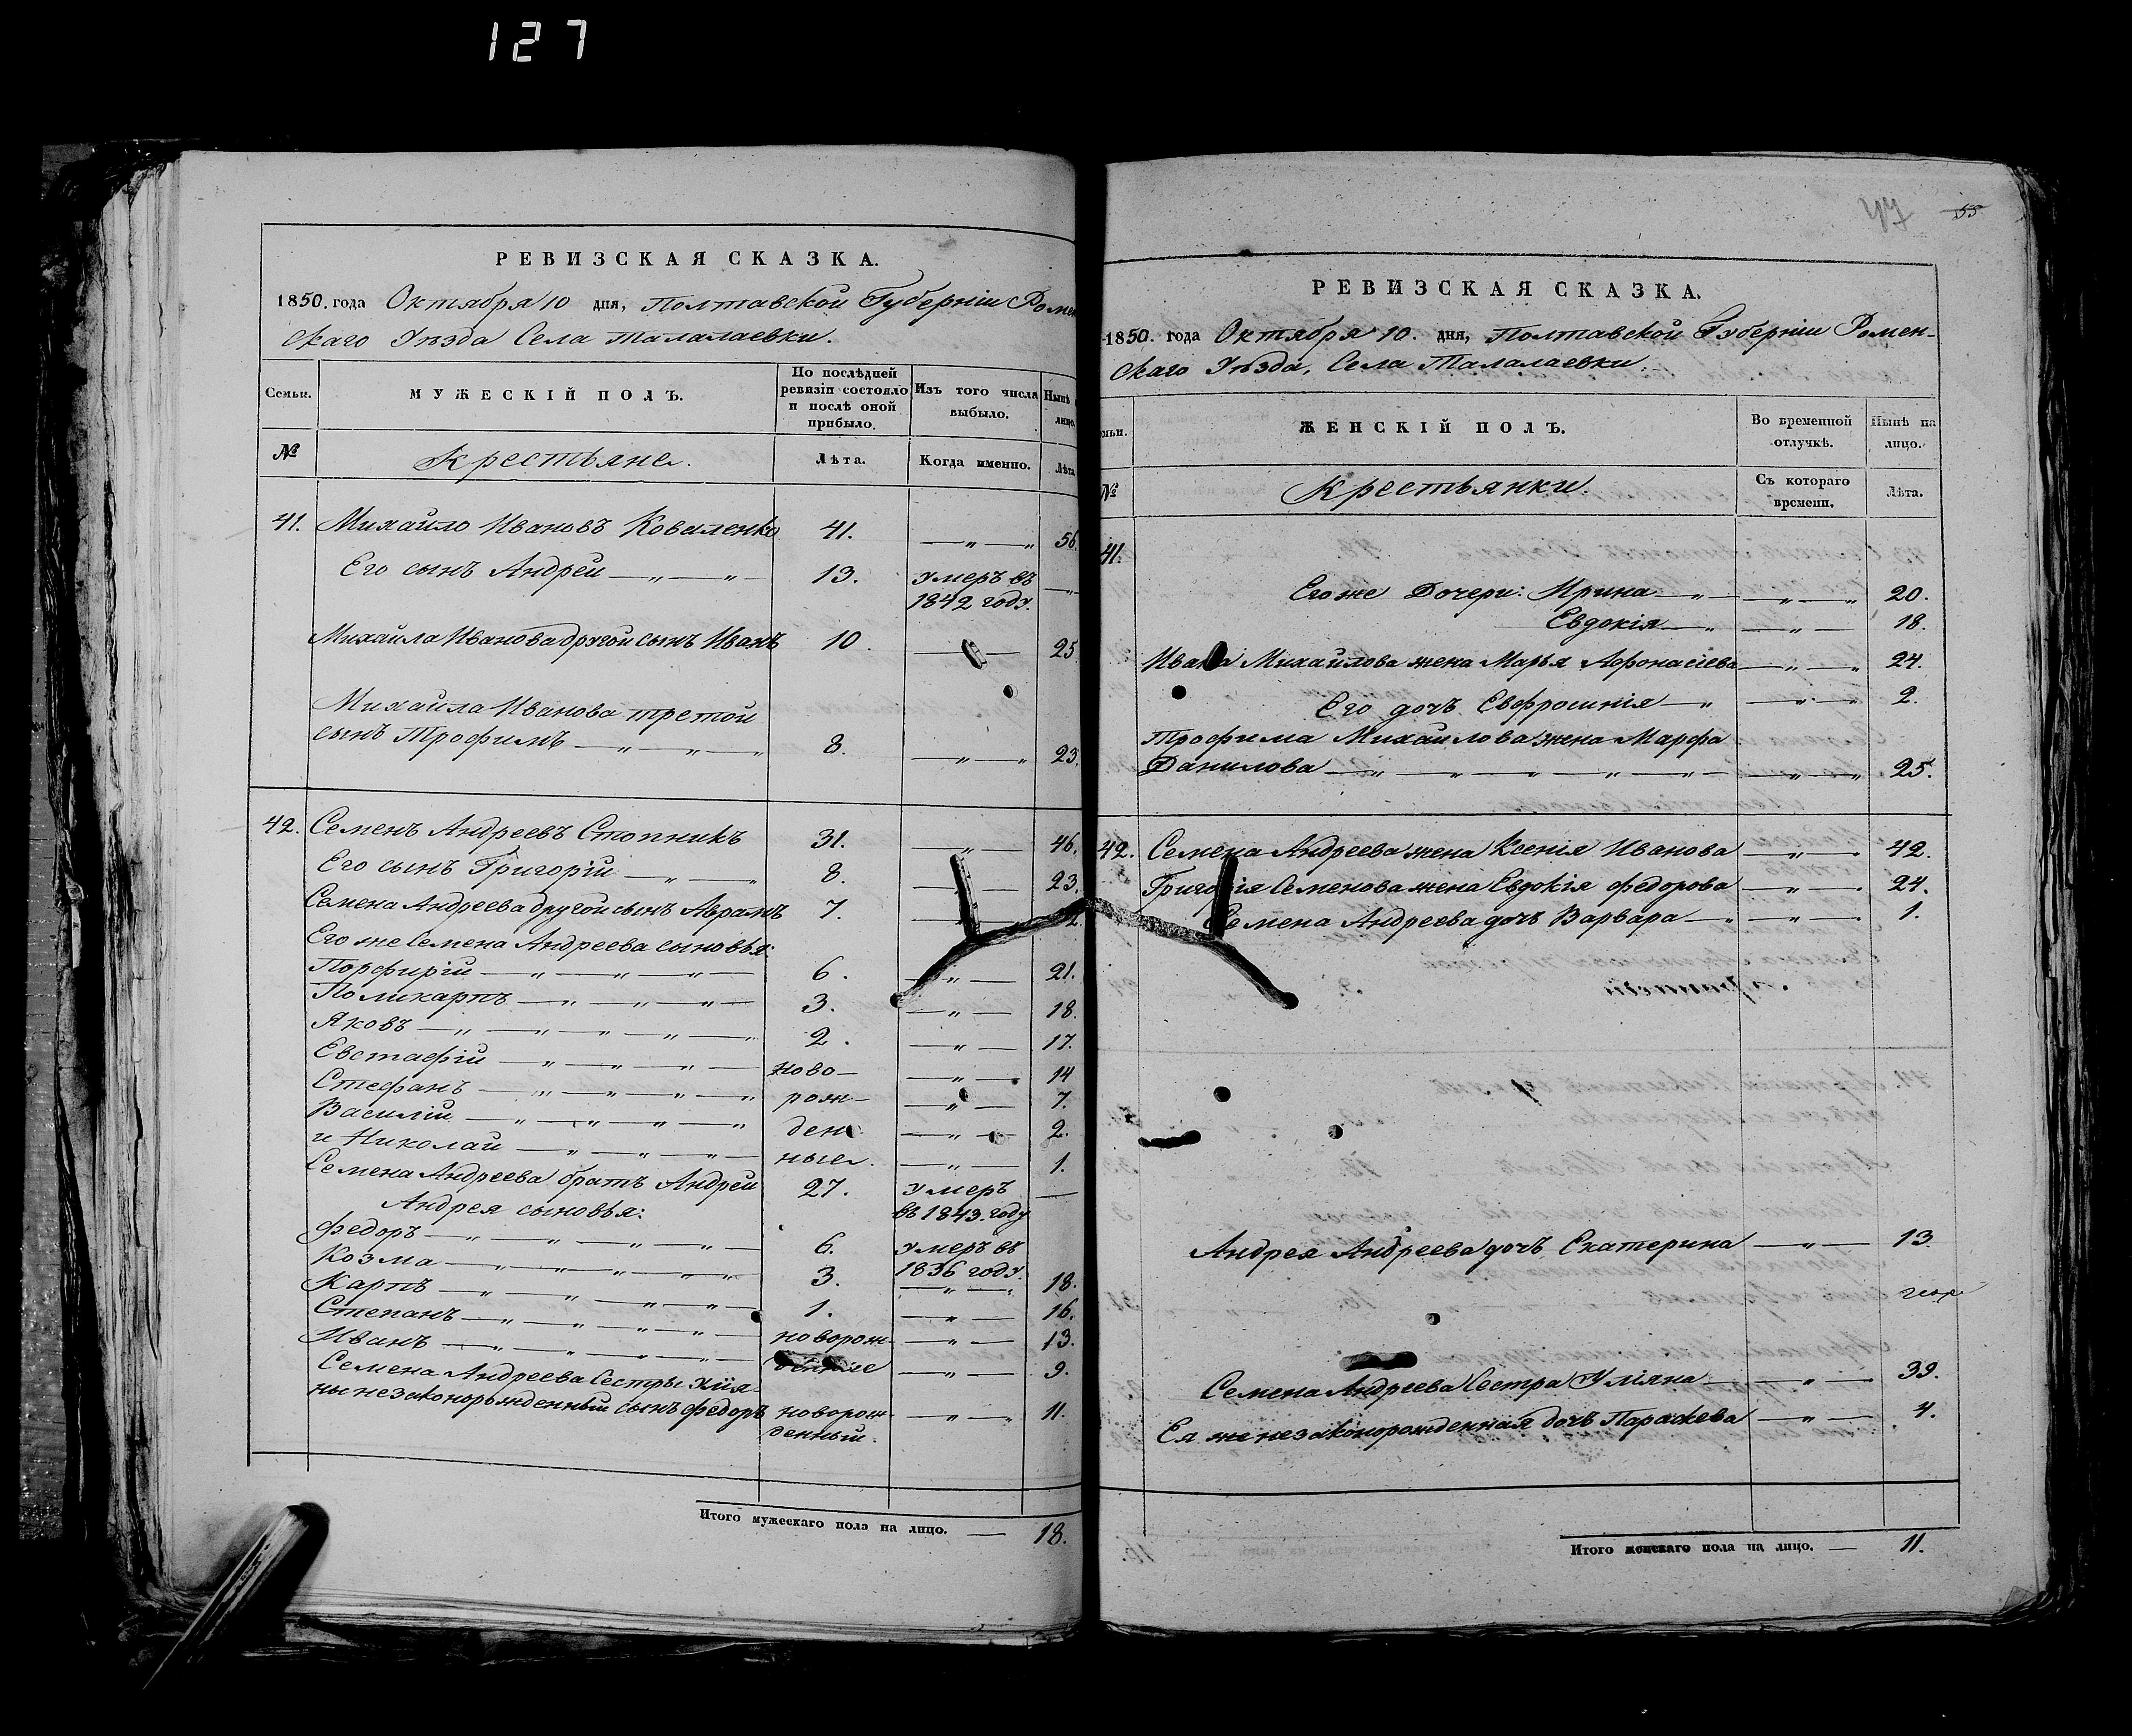 127
РЕВИЗСКАЯ СКАЗКА.
1850. года Октября 10 дня, Полтавской Губерніи Ромен
скаго Уѣзда Села Талалаевки.
Семьи. МУЖЕСКІЙ ПОЛЪ. По послѣдней ревизіи состояло и послѣ оной прибыло. Изъ того числа выбыло. Нынѣ лицо.
№ Крестьяне. Лѣта. Когда именно. Лѣта
41. Михайло Ивановъ Коваленко 41. —„—„ 56.
Его сынъ Андрей —„—„— 13. умеръ въ —„
1842 году.
Михайла Иванова другой сынъ Иванъ 10. — — 25
Михайла Иванова третой
сынъ Трофимъ —„—„—„ 8. —„—„ 23.
42. Семенъ Андреевъ Стопникъ 31. —„— 46.
Его сынъ Григорій —„—„ 8. — — 23.
Семена Андреева другой сынъ Аврамъ 7.
Его же Семена Андреева сыновья:
Порфирій —„—„—„— 6. —„— 21.
Поликарпъ —„—„—„— 3. —„— 18.
Яковъ —„—„—„—„—„ 2. —„— 17.
Евстафій —„—„—„— ново- —„— 14
Стефанъ —„—„—„—„ рож- —„— 7.
Василій —„—„—„—„ ден —„— 2.
и Николай —„—„—„— ные. —„— 1.
Семена Андреева братъ Андрей 27. умеръ —
Андрея сыновья: въ 1843. году
Федоръ —„—„—„—„— 6. умеръ въ
Козма —„—„—„—„—„ 3. 1836 году. —„—„ 18.
Карпъ —„—„—„—„— 1. —„— 16.
Степанъ —„—„—„—„— новорож- —„— 13.
Иванъ —„—„—„—„— денные —„— 9.
Семена Андреева Сестры Улія-
ны незаконорожденный сынъ Федоръ новорож- —„—„ 11.
денный.
Итого мужескаго пола на лицо. — 18.
47 55
РЕВИЗСКАЯ СКАЗКА.
1850. года Октября 10. дня, Полтавской Губерніи Ромен-
скаго Уѣзда, Села Талалаевки.
мьи. ЖЕНСКІЙ ПОЛЪ. Во временной отлучкѣ. Нынѣ на лицо.
№ Крестьянки. Съ котораго времени. Лѣта.
41.
Его же Дочери: Ирина —„— —„—„ 20.
Евдокія —„ —„— 18.
Ивана Михайлова жена Марья Афонасіева —„—„ 24.
Его дочь Евфросинія —„ —„—„ 2.
Трофима Михайлова жена Марфа
Данилова —„—„—„—„—„— —„—„ 25.
42. Семена Андреева жена Ксенія Иванова —„— 42.
Григорія Семенова жена Евдокія Федорова —„— 24.
Семена Андреева дочь Варвара —„ —„— 1.
Андрея Андреева дочь Екатерина —„— 13.
Семена Андреева Сестра Уліяна — —„— 39.
Ея же незаконорожденная дочь Параскева —„— 4.
Итого женскаго пола на лицо. — 11.